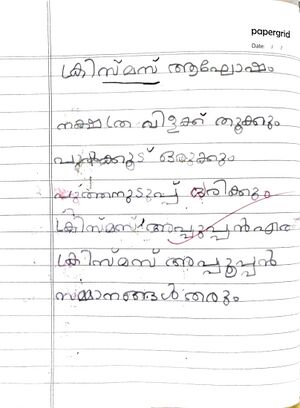 papergrid
Date: / /
ക്രിസ്മസ് ആഘോഷം
നക്ഷത്ര വിളക്ക് തൂക്കും
പുൽക്കൂട് ഒരുക്കും
പുത്തനുടുപ്പ് ധരിക്കും
ക്രിസ്മസ് അപ്പൂപ്പൻ എത്
ക്രിസ്മസ് അപ്പൂപ്പൻ
സമ്മാനങ്ങൾ തരും